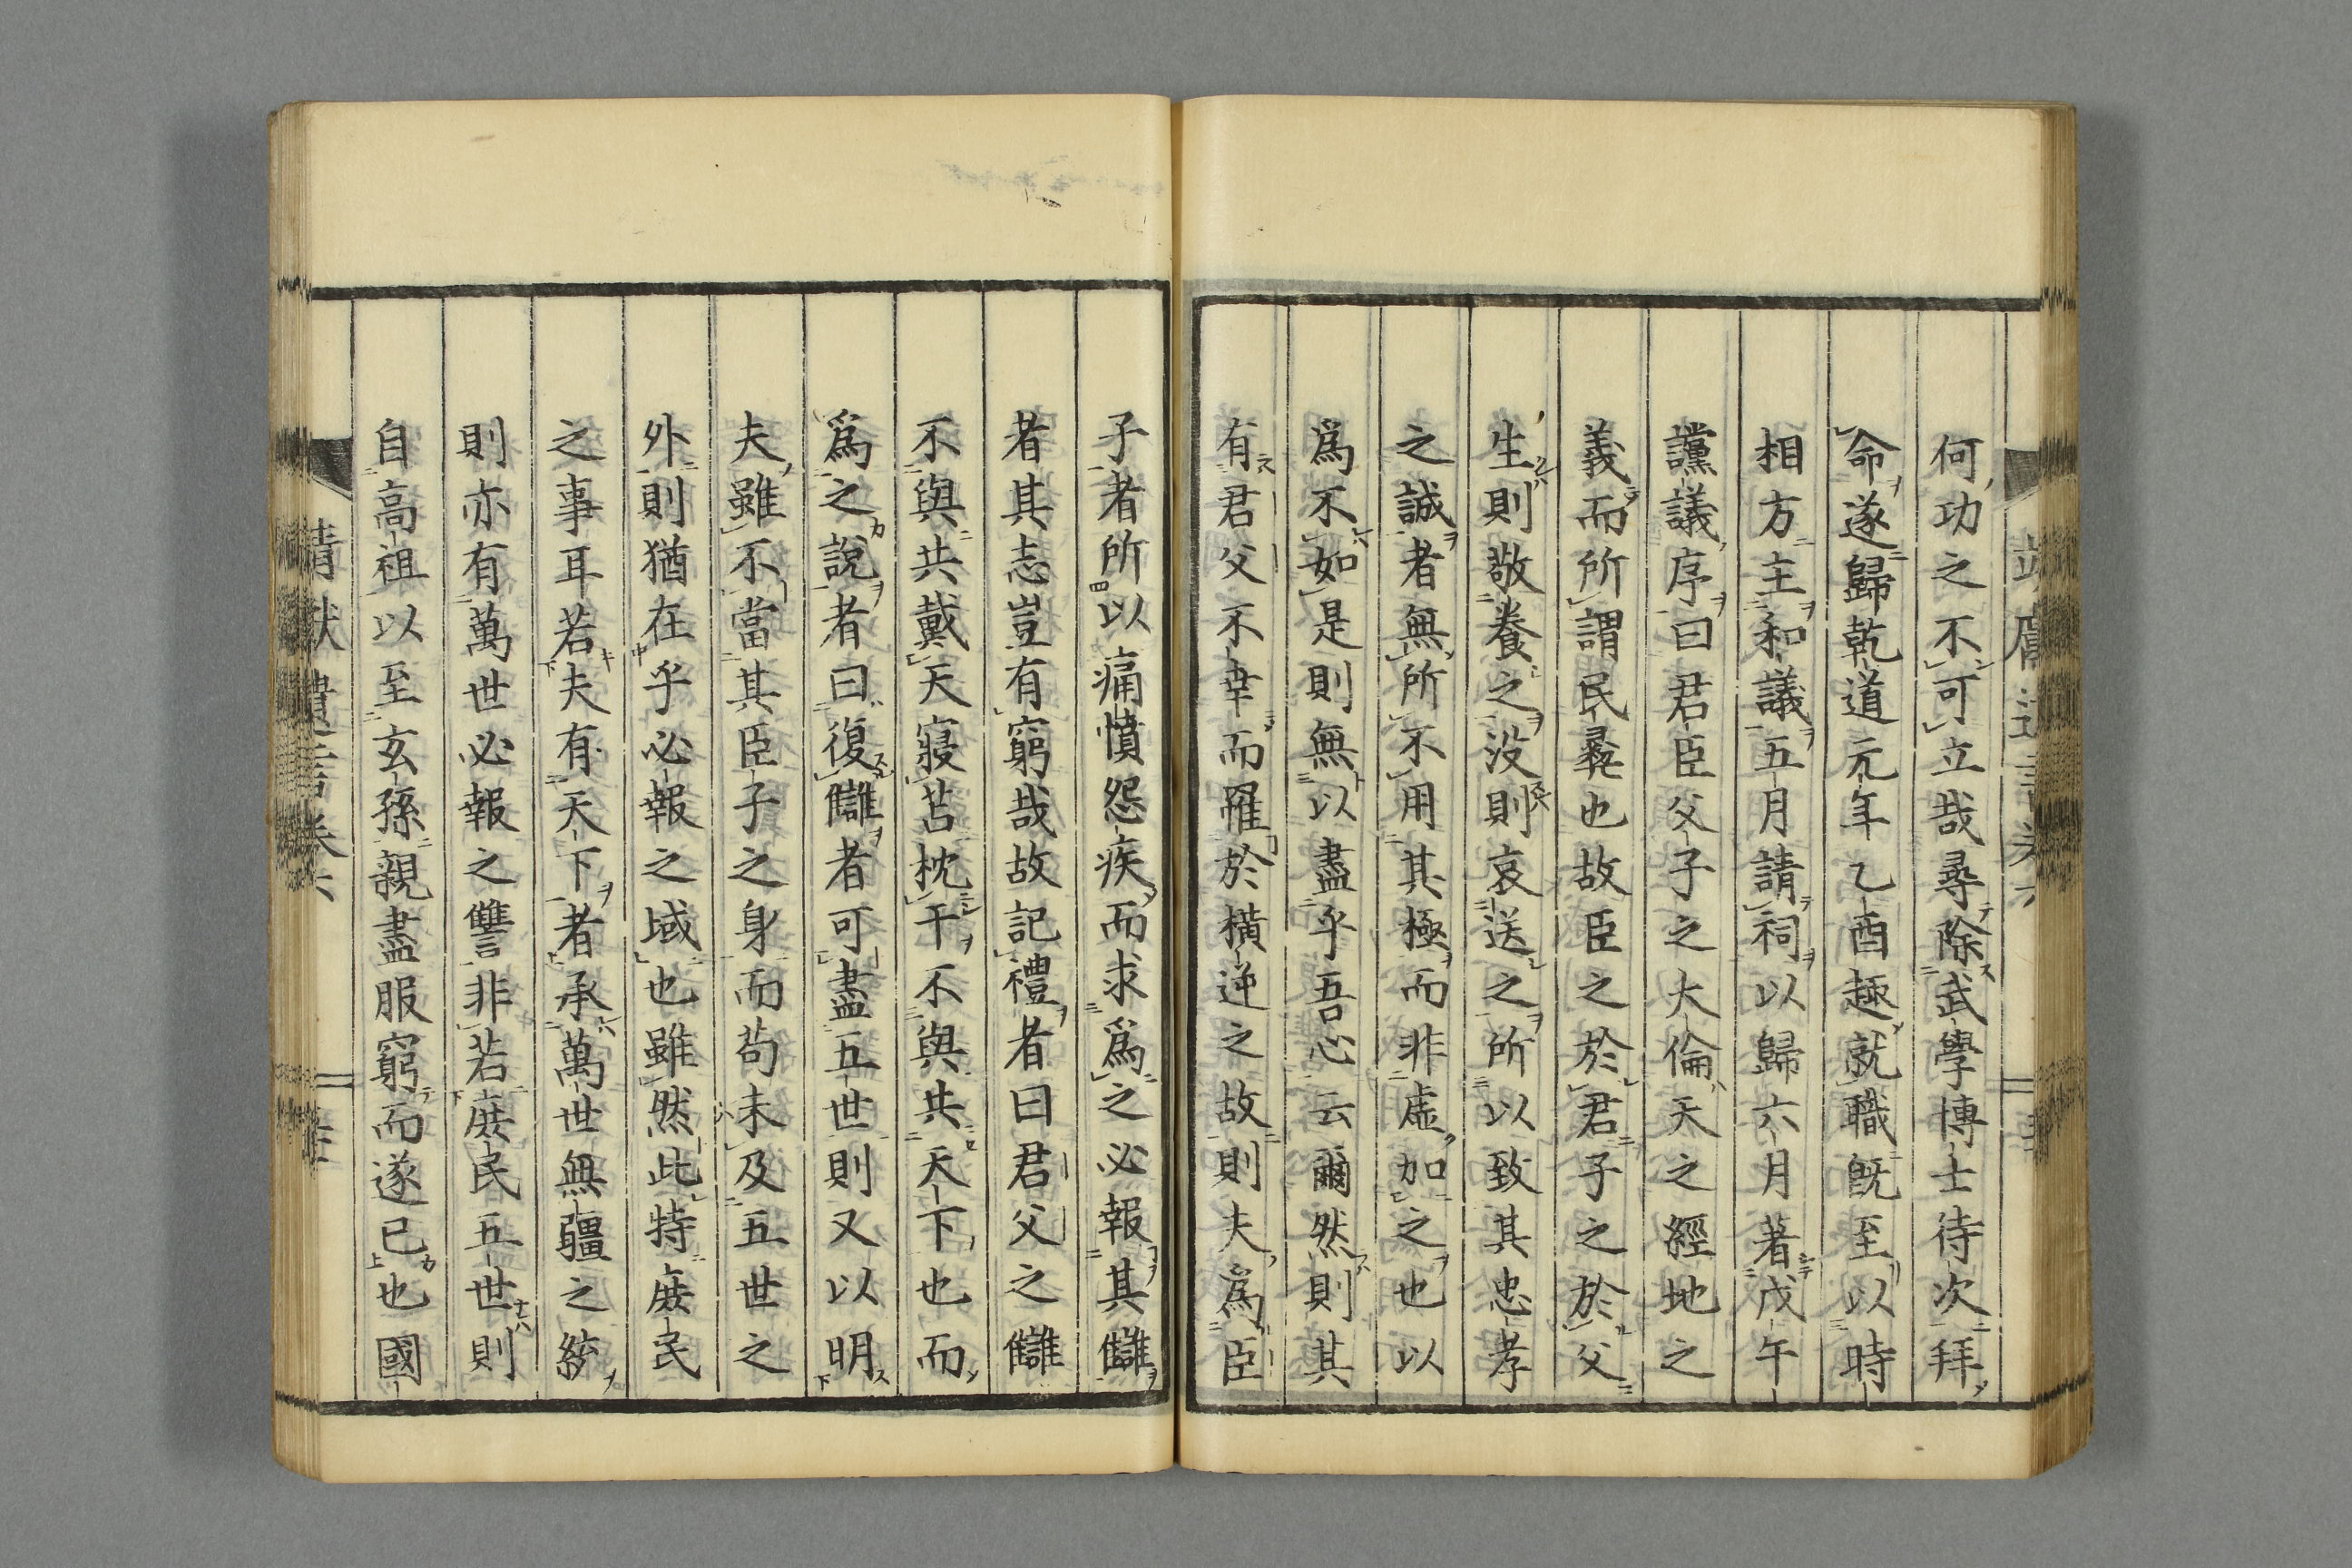 何功之不可立哉尋除武學博士待次拜
命遂歸乾道元年乙酉趣就職既至以時
相方主和議五月請祠以歸六月著戊午
讜議序曰君臣父子之大倫天之經地之
義而所謂民彝也故臣之於君子之於父
生則敬養之没則哀送之所以致其忠孝
之誠者無所不用其極而非虚加之也以
爲不如是則無以盡乎吾心云爾然則其
有君父不幸而罹於横逆之故則夫爲臣
子者所以痛憤怨疾而求爲之必報其讎
者其志豈有窮哉故記禮者曰君父之讎
不與共戴天寢苫枕干不與共天下也而
爲之説者曰復讎者可盡五世則又以明
夫雖不當其臣子之身而苟未及五世之
外則猶在乎必報之域也雖然此特庻民
之事耳若夫有天下者承萬世無疆之統
則亦有萬世必報之讐非若庻民五世則
自高祖以至玄孫親盡服窮而遂已也國